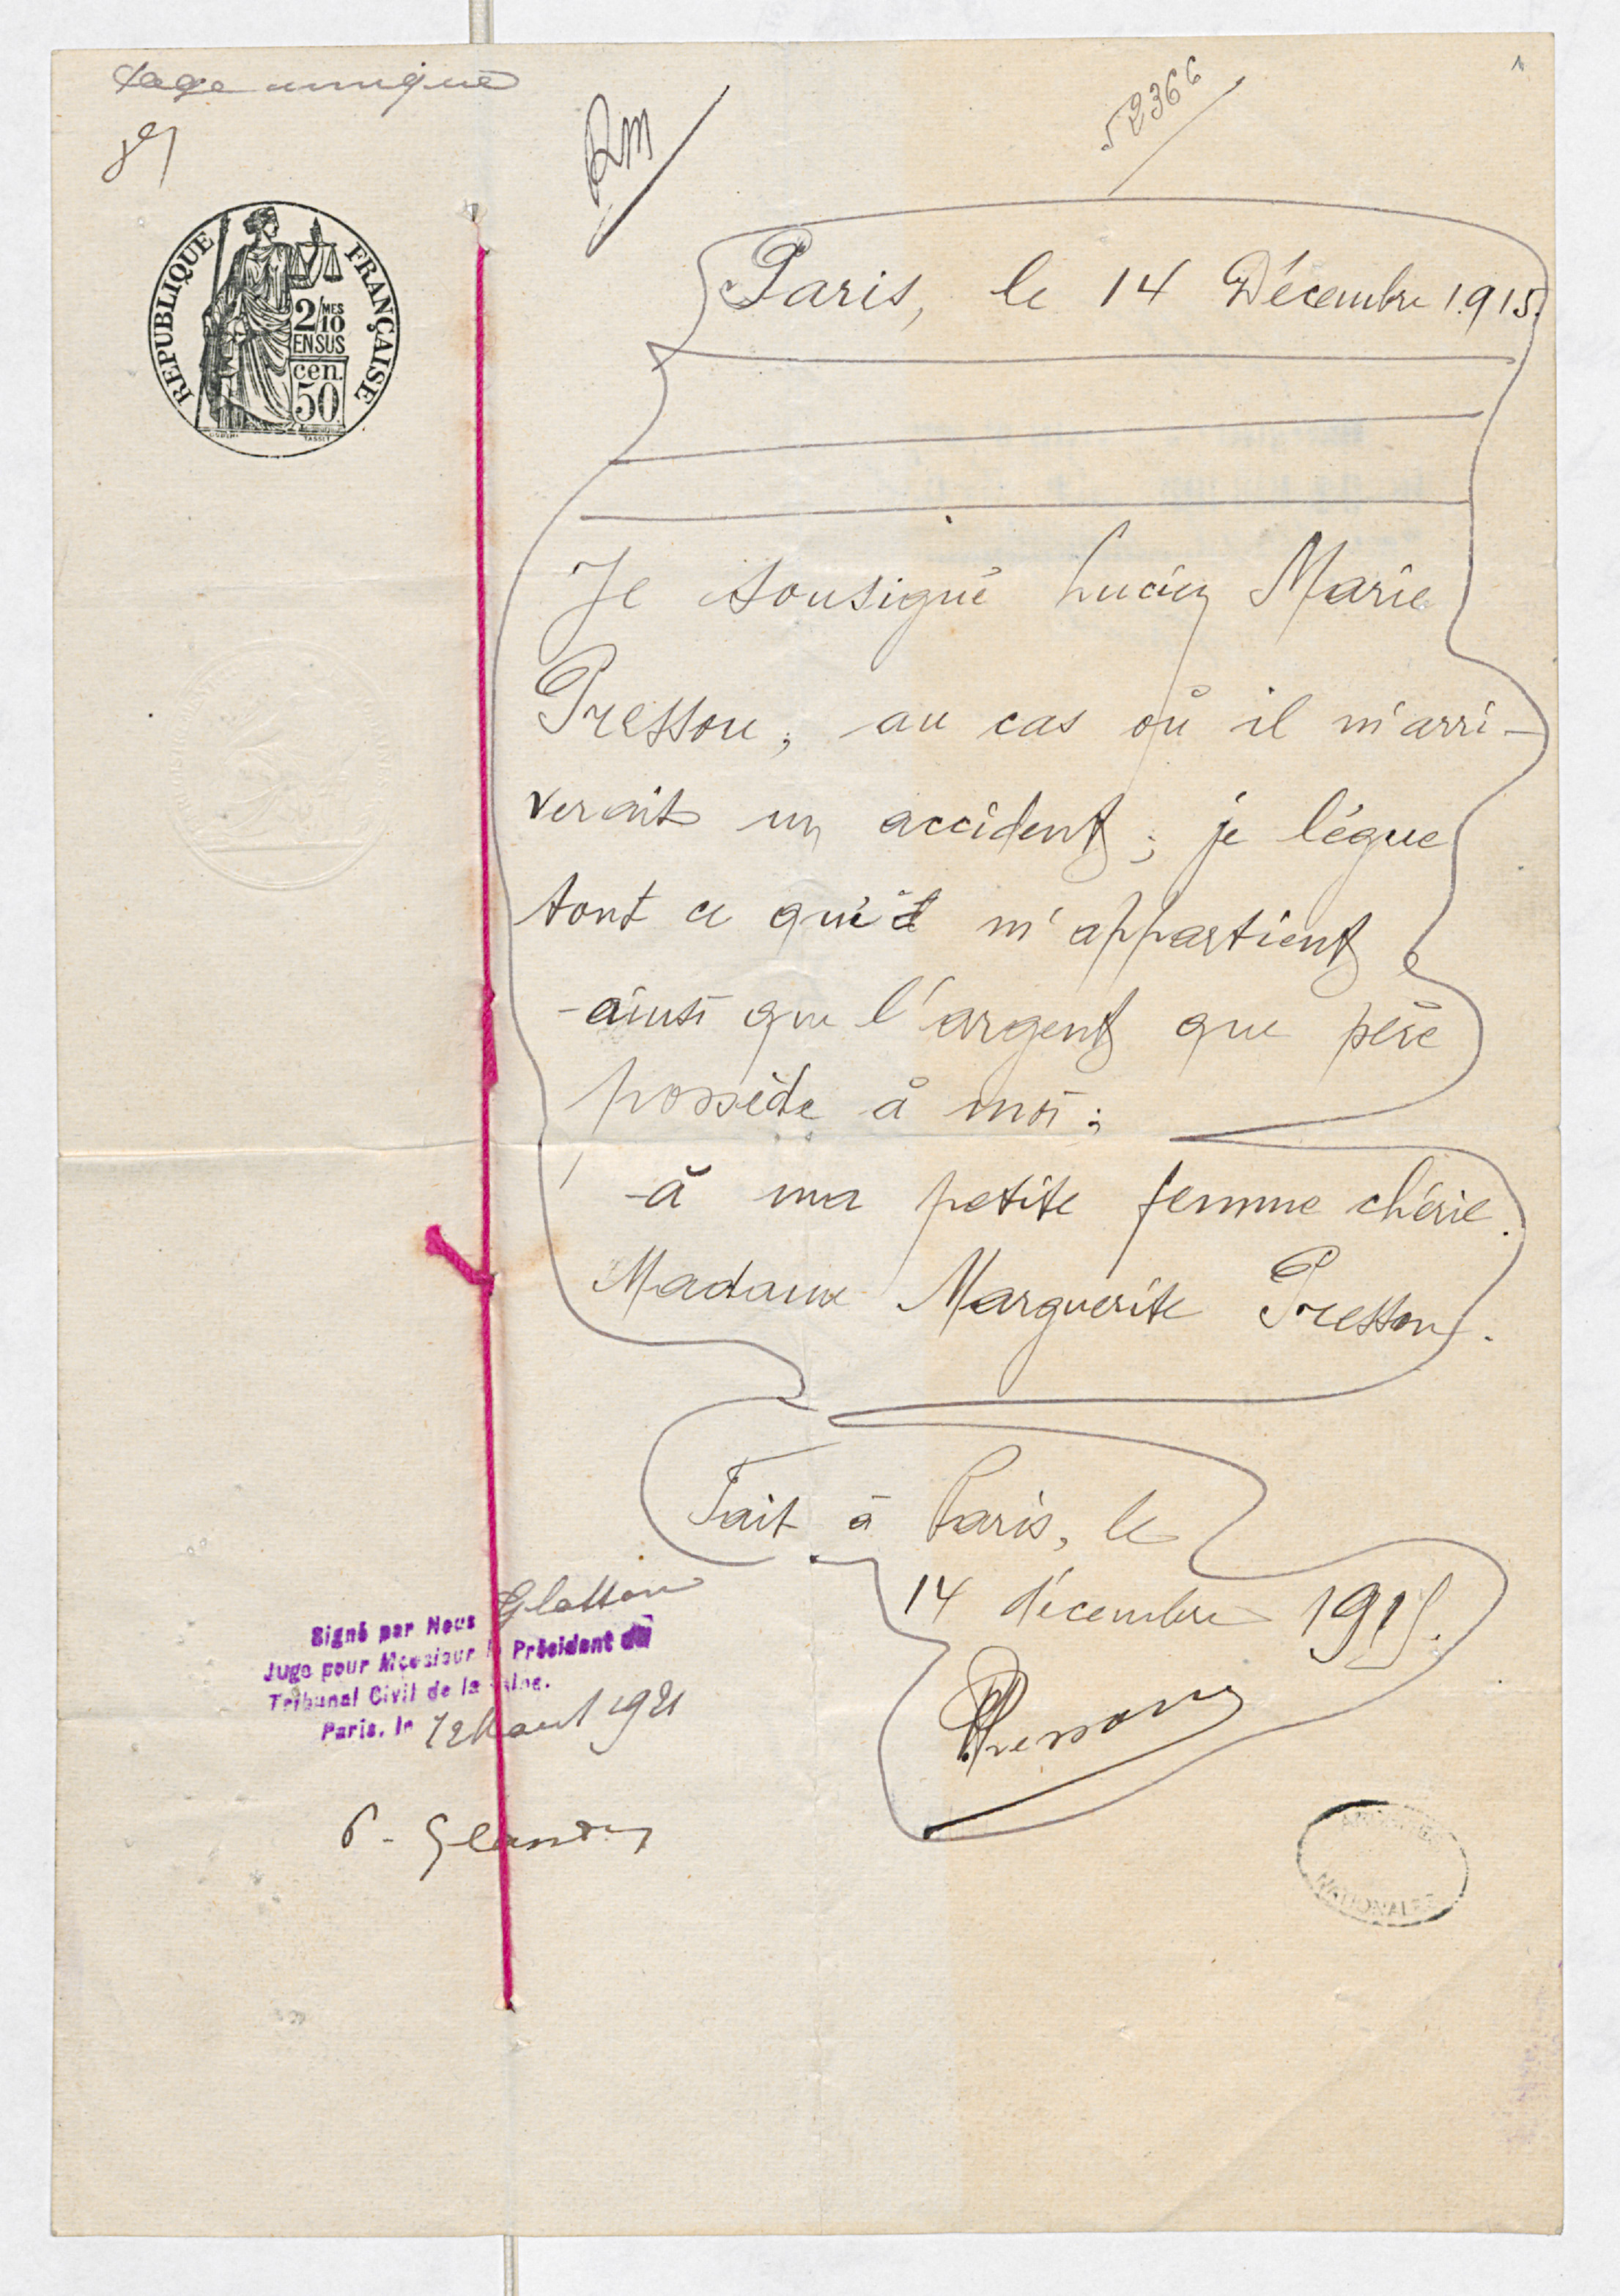 Page unique
Rm
52366
1
REPUBLIQUE FRANÇAISE
2/10 MES
EN SUS
cen.
50
Paris, le 14 Décembre 1915.
Je sousigné Lucien Marie
Presson, au cas où il m'arri-
verait un accident ; je lègue
tout ce qui m'appartient
-ainsi que l'argent que père
possède à moi ;
-à ma petite femme chérie.
Madame Marguerite Presson.
Fait à Paris, le
14 décembre 1915.
Presson
Signé par Nous
Juge pour Monsieur le Président du
Tribunal Civil de la Seine.
Paris, le 12 Aout 1921
ARCHIVES
NATIONALES